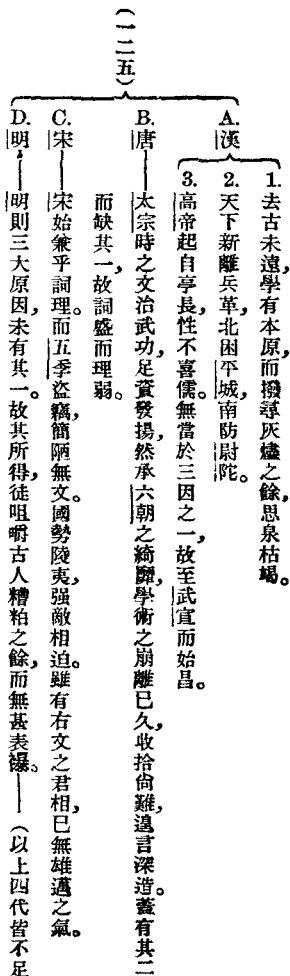 （一二五）
A. 漢
1. 去古未遠，學有本原，而撥尋灰燼之餘，思泉枯竭。
2. 天下新離兵革，北困平城，南防尉陀。
3. 高帝起自亭長，性不喜儒。無當於三因之一，故至武宣而始昌。
B. 唐——太宗時之文治武功，足資發揚，然承六朝之綺靡，學術之崩離已久，收拾尙難，遑言深造。蓋有其二
而缺其一，故詞盛而理弱。
C. 宋——宋始兼乎詞理。而五季盜竊，簡陋無文。國勢陵夷，强敵相迫。雖有右文之君相，已無雄邁之氣。
D. 明——明則三大原因，未有其一。故其所得，徒咀嚼古人糟粕之餘，而無甚表襮。——（以上四代皆不足